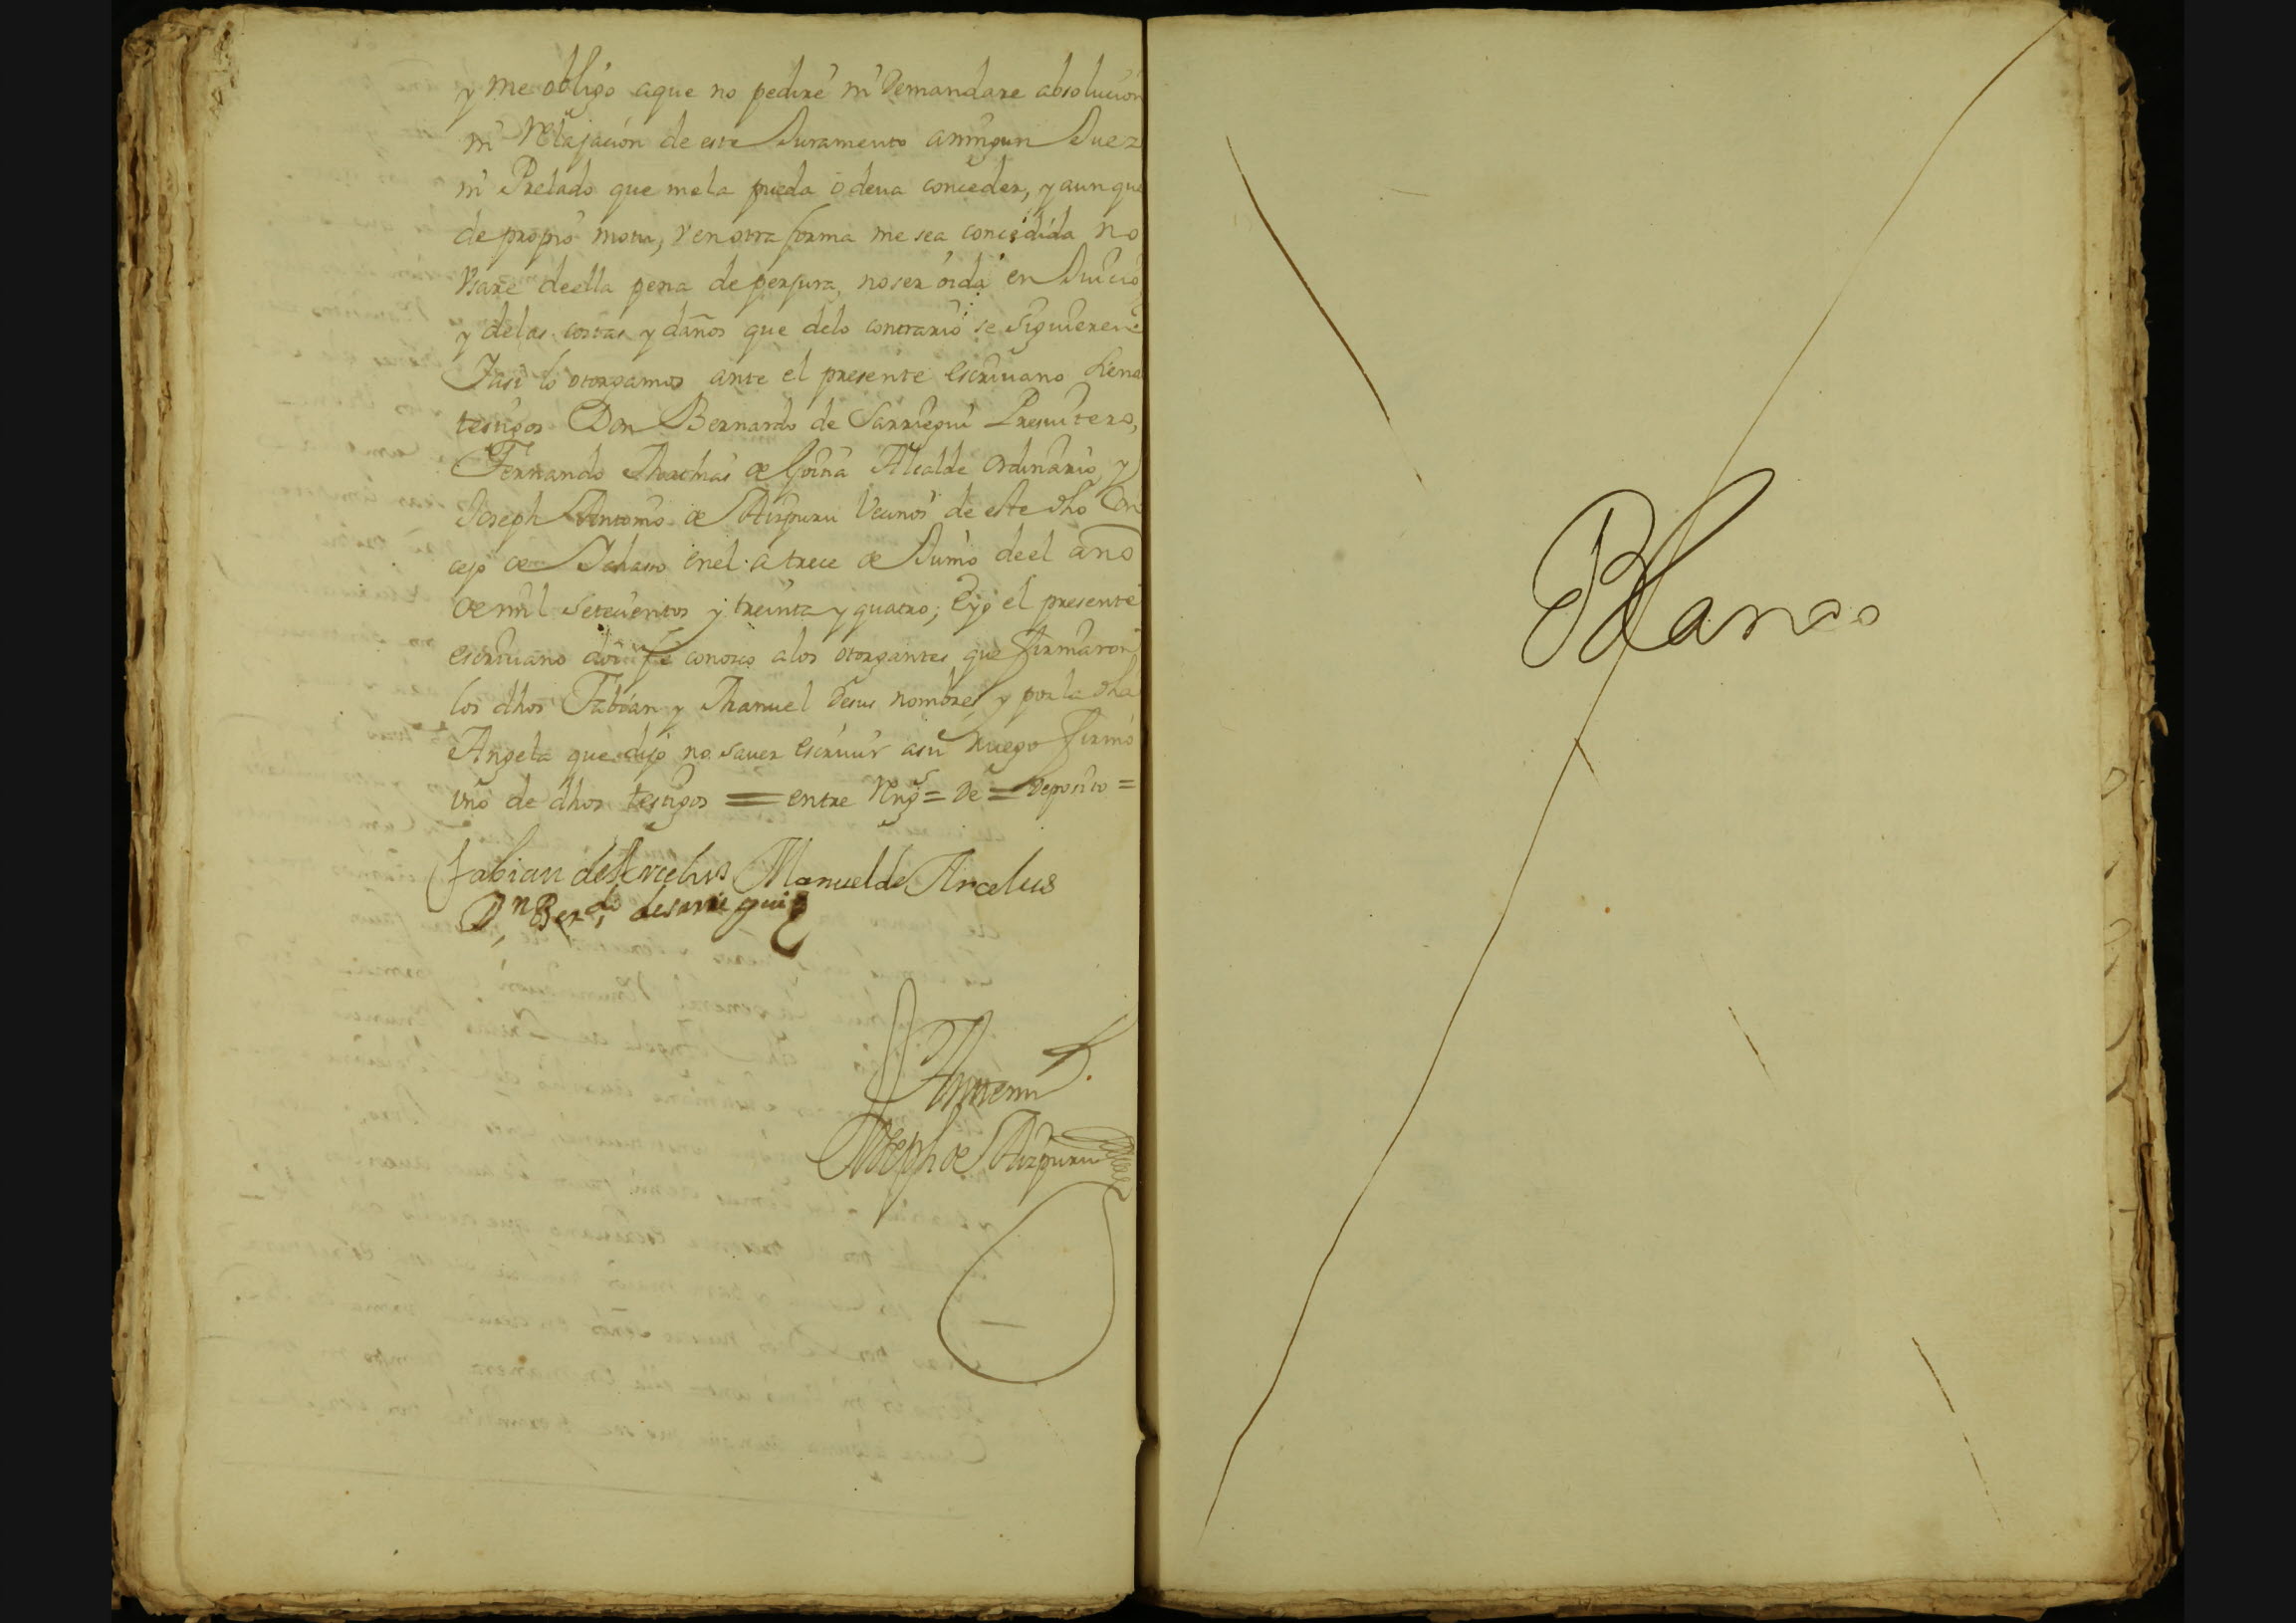 y me obligo aque no pedire ni Demandare absolucion
ni Relajacion de este Juramento aningun Juez
ni Prelado que mela pueda o deva conceder, y aunque
de propio motu, y en otra forma me sea concedida no
Usare deella pena de perjura, noser oida en Juicio
y delas costas y daños que delo contrario se siguieren
Yasi lo otorgamos ante el presente escrivano siendo
testigos Don Bernardo de Sarriegui Presvitero,
Fernando Mathias de Goina Alcalde ordinario, y
Joseph Antonio de Aizpuru Vecinos de este dho Con
cejo de enel a trece de Junio deel año
de mil setecientos y treinta y quatro; Eyo el presente
escrivano doi fe conozco alos otorgantes que firmaron
los dhos Fabian y Manuel desus nombres y por la dha
Angela que dijo no saver escrivir asu ruego firmo
uno de dhos testigos = entre Rengs = De = Deposito =
Fabian de Arcelus Manuel de Arcelus
Dn Berdo de sarriegui
Ante mi
Joseph de Aizpuru
Blanco